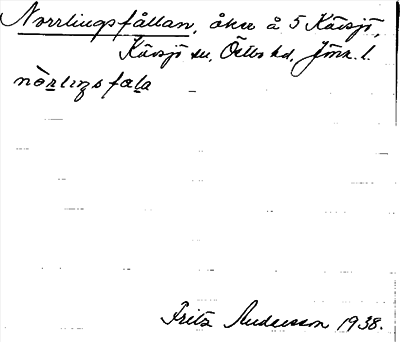 Norrlingsfållan, åker å 5 Kävsjö,
Kävsjö sn, Östbo hd, Jönk. l.
nòrlıŋsfala
Fritz Andersson 1938.